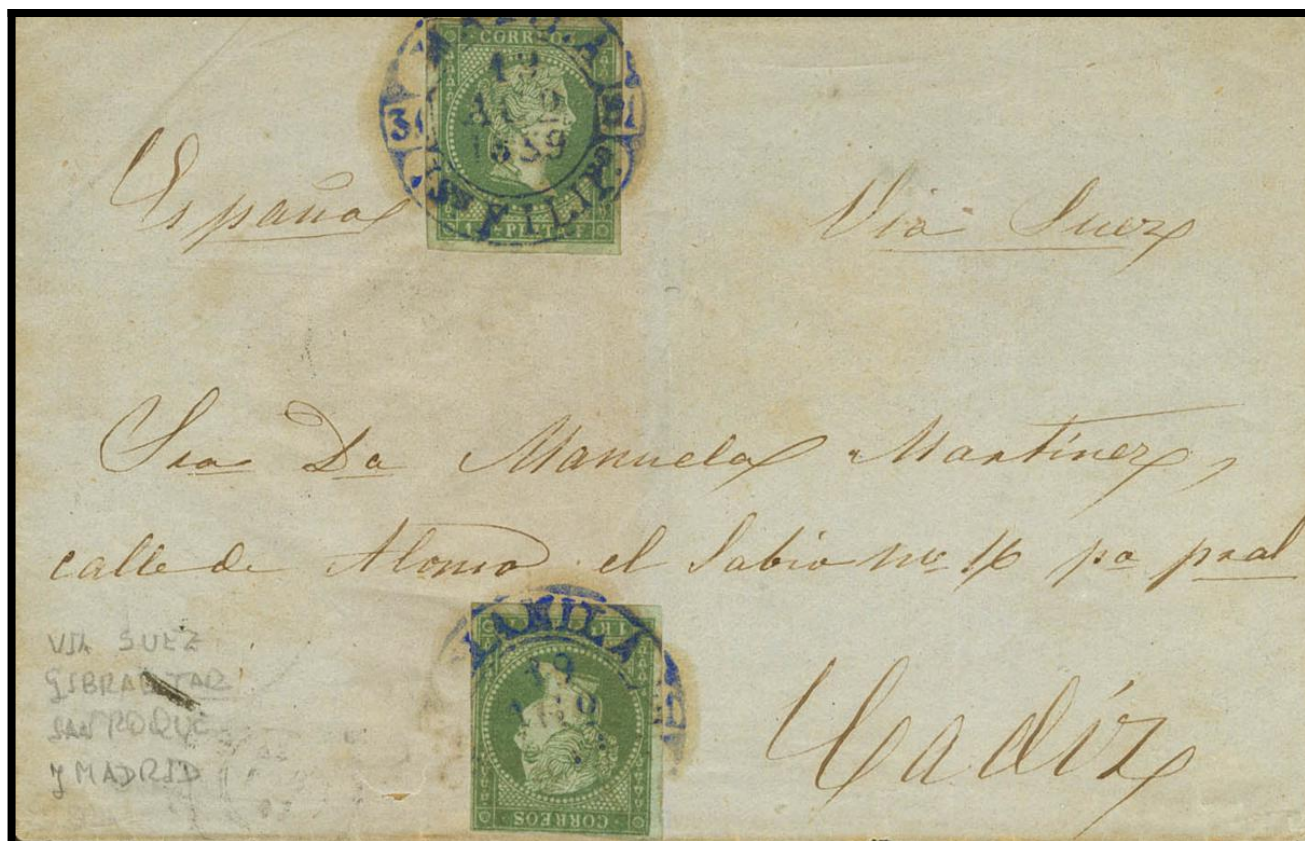 CORREOS
19
1859
Yˢ FILIPˢ
PLATA F
España Via Suez
Sra Da Manuela Martinez,
calle de Alonso el Sabio no 16 po pral
MANILA
19
CORREOS
Cadiz
VIA SUEZ
GIBRALTAR
SAN ROQUE
Y MADRID